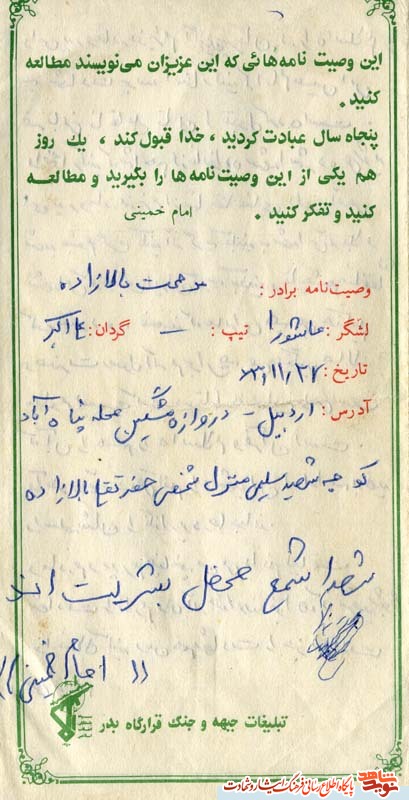 این وصیت نامه‌هائی که این عزیزان می‌نویسند مطالعه
کنید.
پنجاه سال عبادت کردید، خدا قبول کند، یك روز
هم یکی از این وصیت‌نامه ها را بگیرید و مطالعــه
کنید و تفکر کنید. امام خمینی
وصیت‌نامه برادر: بالازاده
لشگر: عاشورا تیپ: — گردان: ع اکبر
تاریخ:
آدرس: اردبیل - دروازه مشگین محله پناه آباد
کوچه شهید سلیمی منزل شخصی بالازاده
شهدا شمع محفل بشریت اند
(( امام خمینی ))
تبلیغات جبهه و جنگ قرارگاه بدر
نوید شاهد
پایگاه اطلاع رسانی فرهنگ ایثار و شهادت